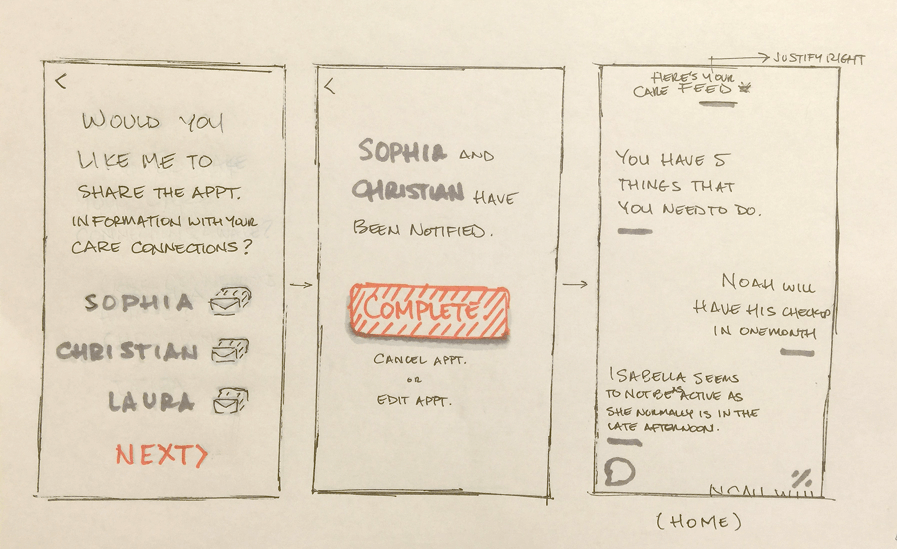 <
WOULD YOU
LIKE ME TO
SHARE THE APPT.
INFORMATION WITH YOUR
CARE CONNECTIONS?
SOPHIA
CHRISTIAN
LAURA
NEXT>
<
SOPHIA AND
CHRISTIAN HAVE
BEEN NOTIFIED.
COMPLETE!
CANCEL APPT.
OR
EDIT APPT.
JUSTIFY RIGHT
HERE'S YOUR
CARE FEED
YOU HAVE 5
THINGS THAT
YOU NEED TO DO.
NOAH WILL
HAVE HIS CHECKUP
IN ONE MONTH
ISABELLA SEEMS
TO NOT BE AS ACTIVE AS
SHE NORMALLY IS IN THE
LATE AFTERNOON.
NOAH WILL
(HOME)